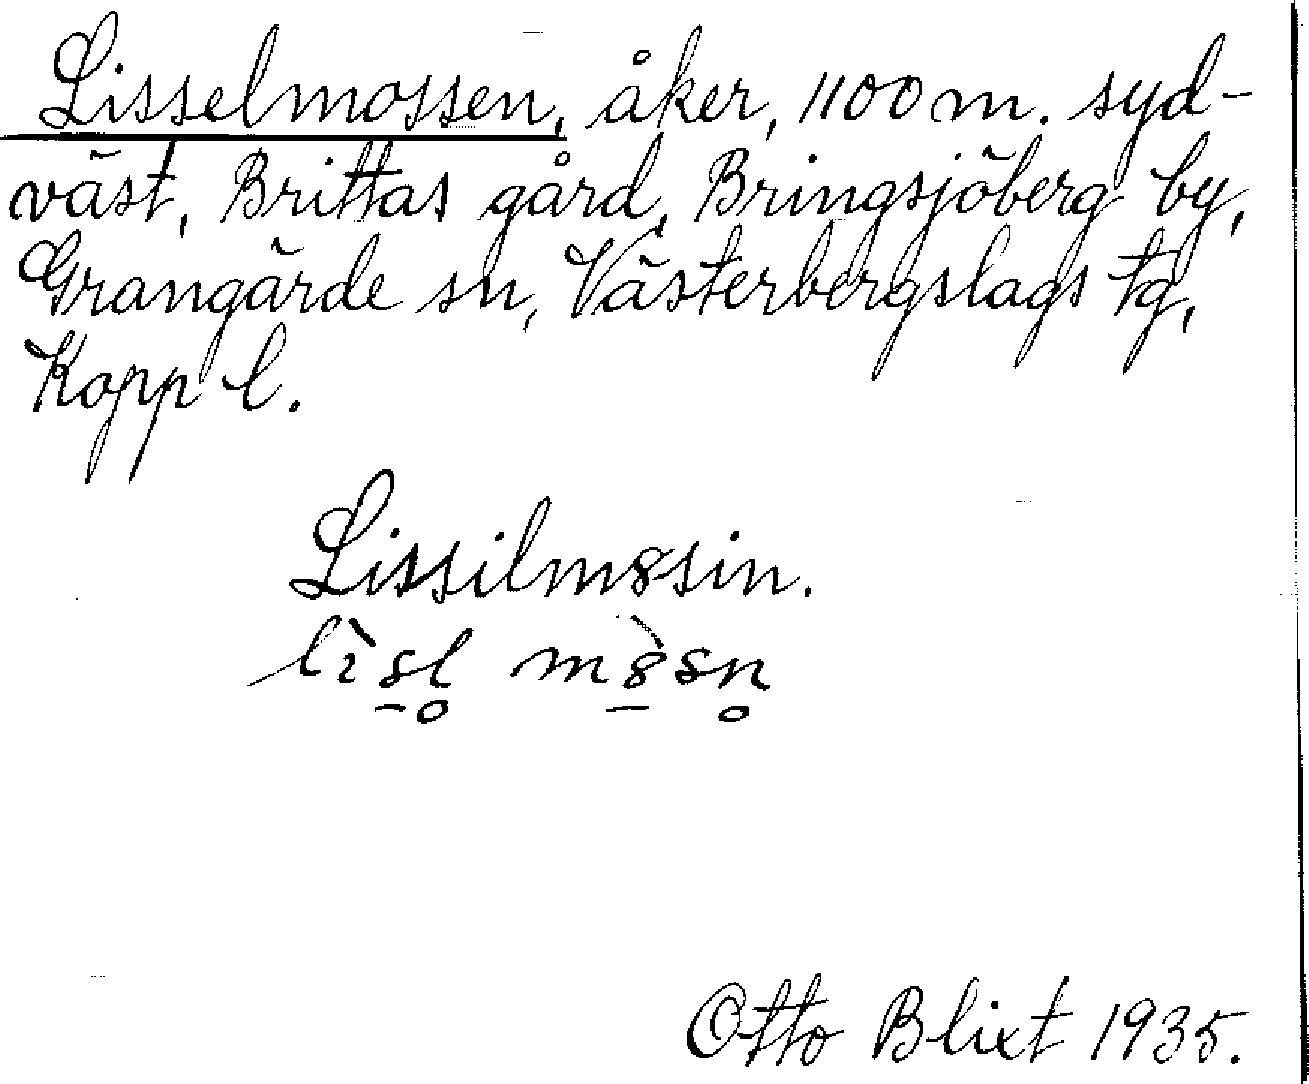 Lisselmossen, åker, 1100 m. syd-
väst, Brittas gård, Bringsjöberg by,
Grangärde sn, Västerbergslags tg,
Kopp l.
Lissilm8sin.
lìs̠l̥ m8̠̀sn̥
Otto Blixt 1935.